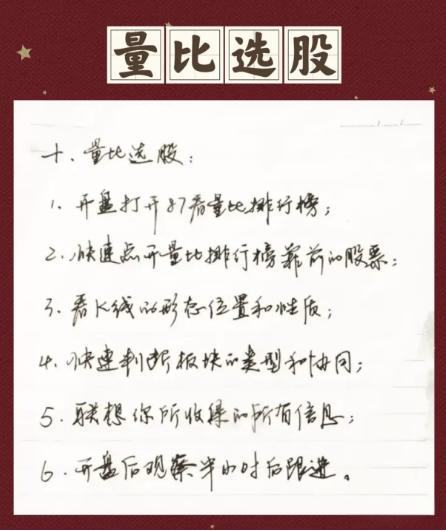 量比选股
十、量比选股：
1、开盘打开87看量比排行榜；
2、快速点开量比排行榜靠前的股票；
3、看K线的形态位置和性质；
4、快速判断板块的类型和协同；
5、联想你所收录的所有信息；
6、开盘后观察半小时后跟进。